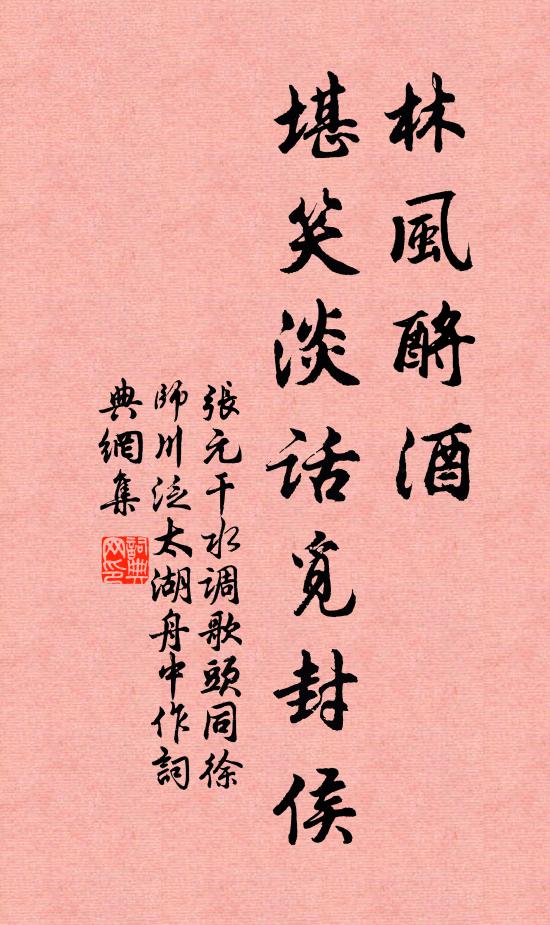 林風酹酒
堪笑淡話覓封侯
張元干水调歌頭同徐
師川泛太湖舟中作詞
典網集
詞典
网印